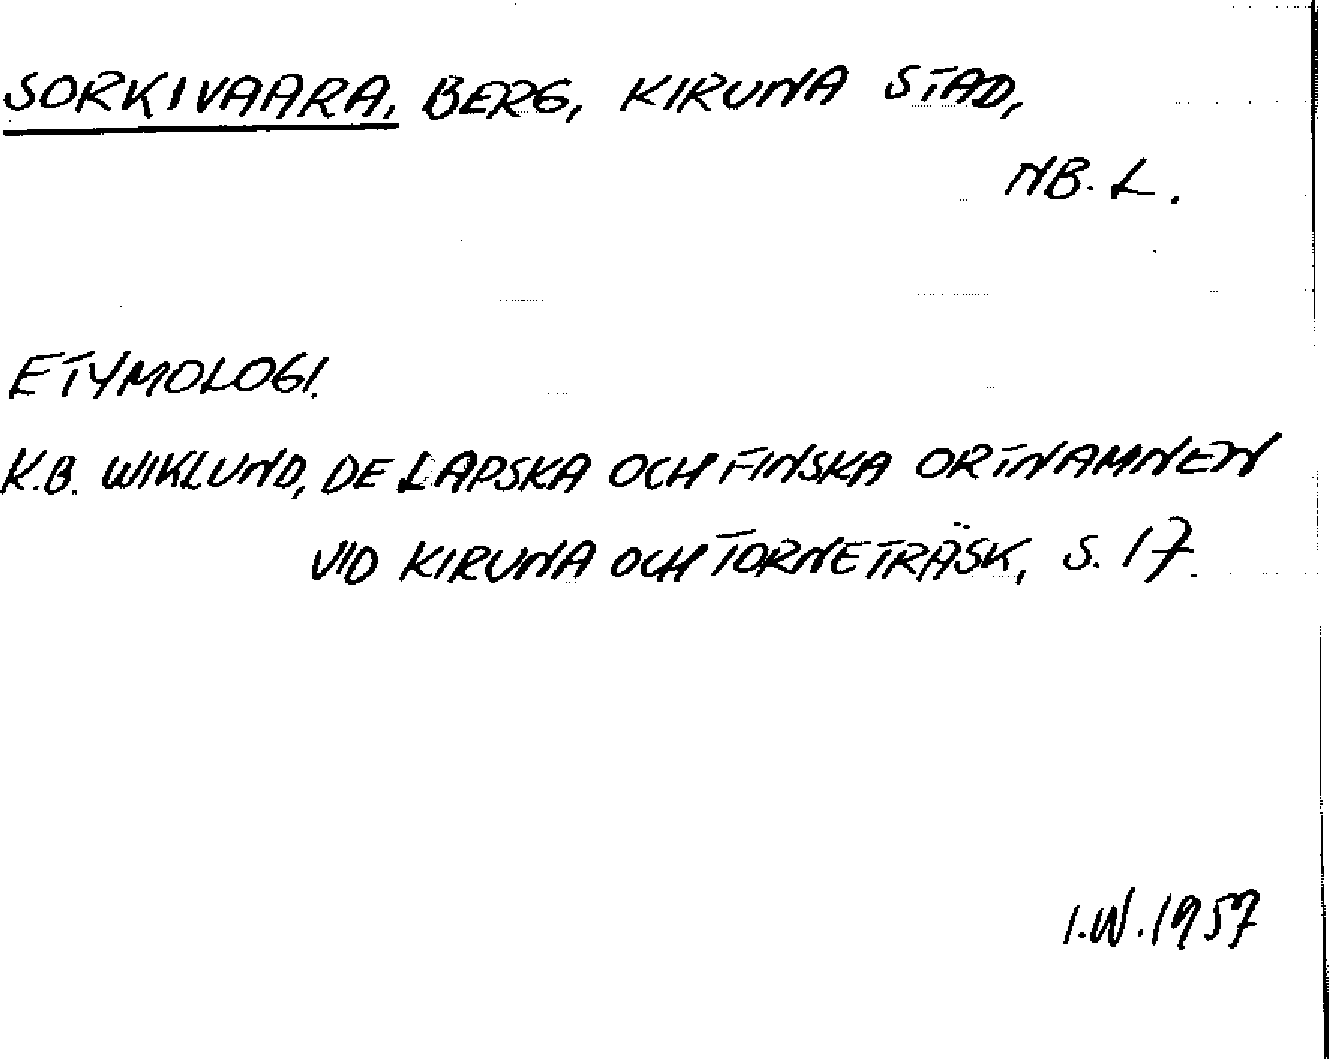 SORKIVAARA, BERG, KIRUNA STAD,
NB. L.
ETYMOLOGI.
K.B. WIKLUND, DE LAPSKA OCH FINSKA ORTNAMNEN
VID KIRUNA OCH TORNETRÄSK, S. 17.
I.W. 1957